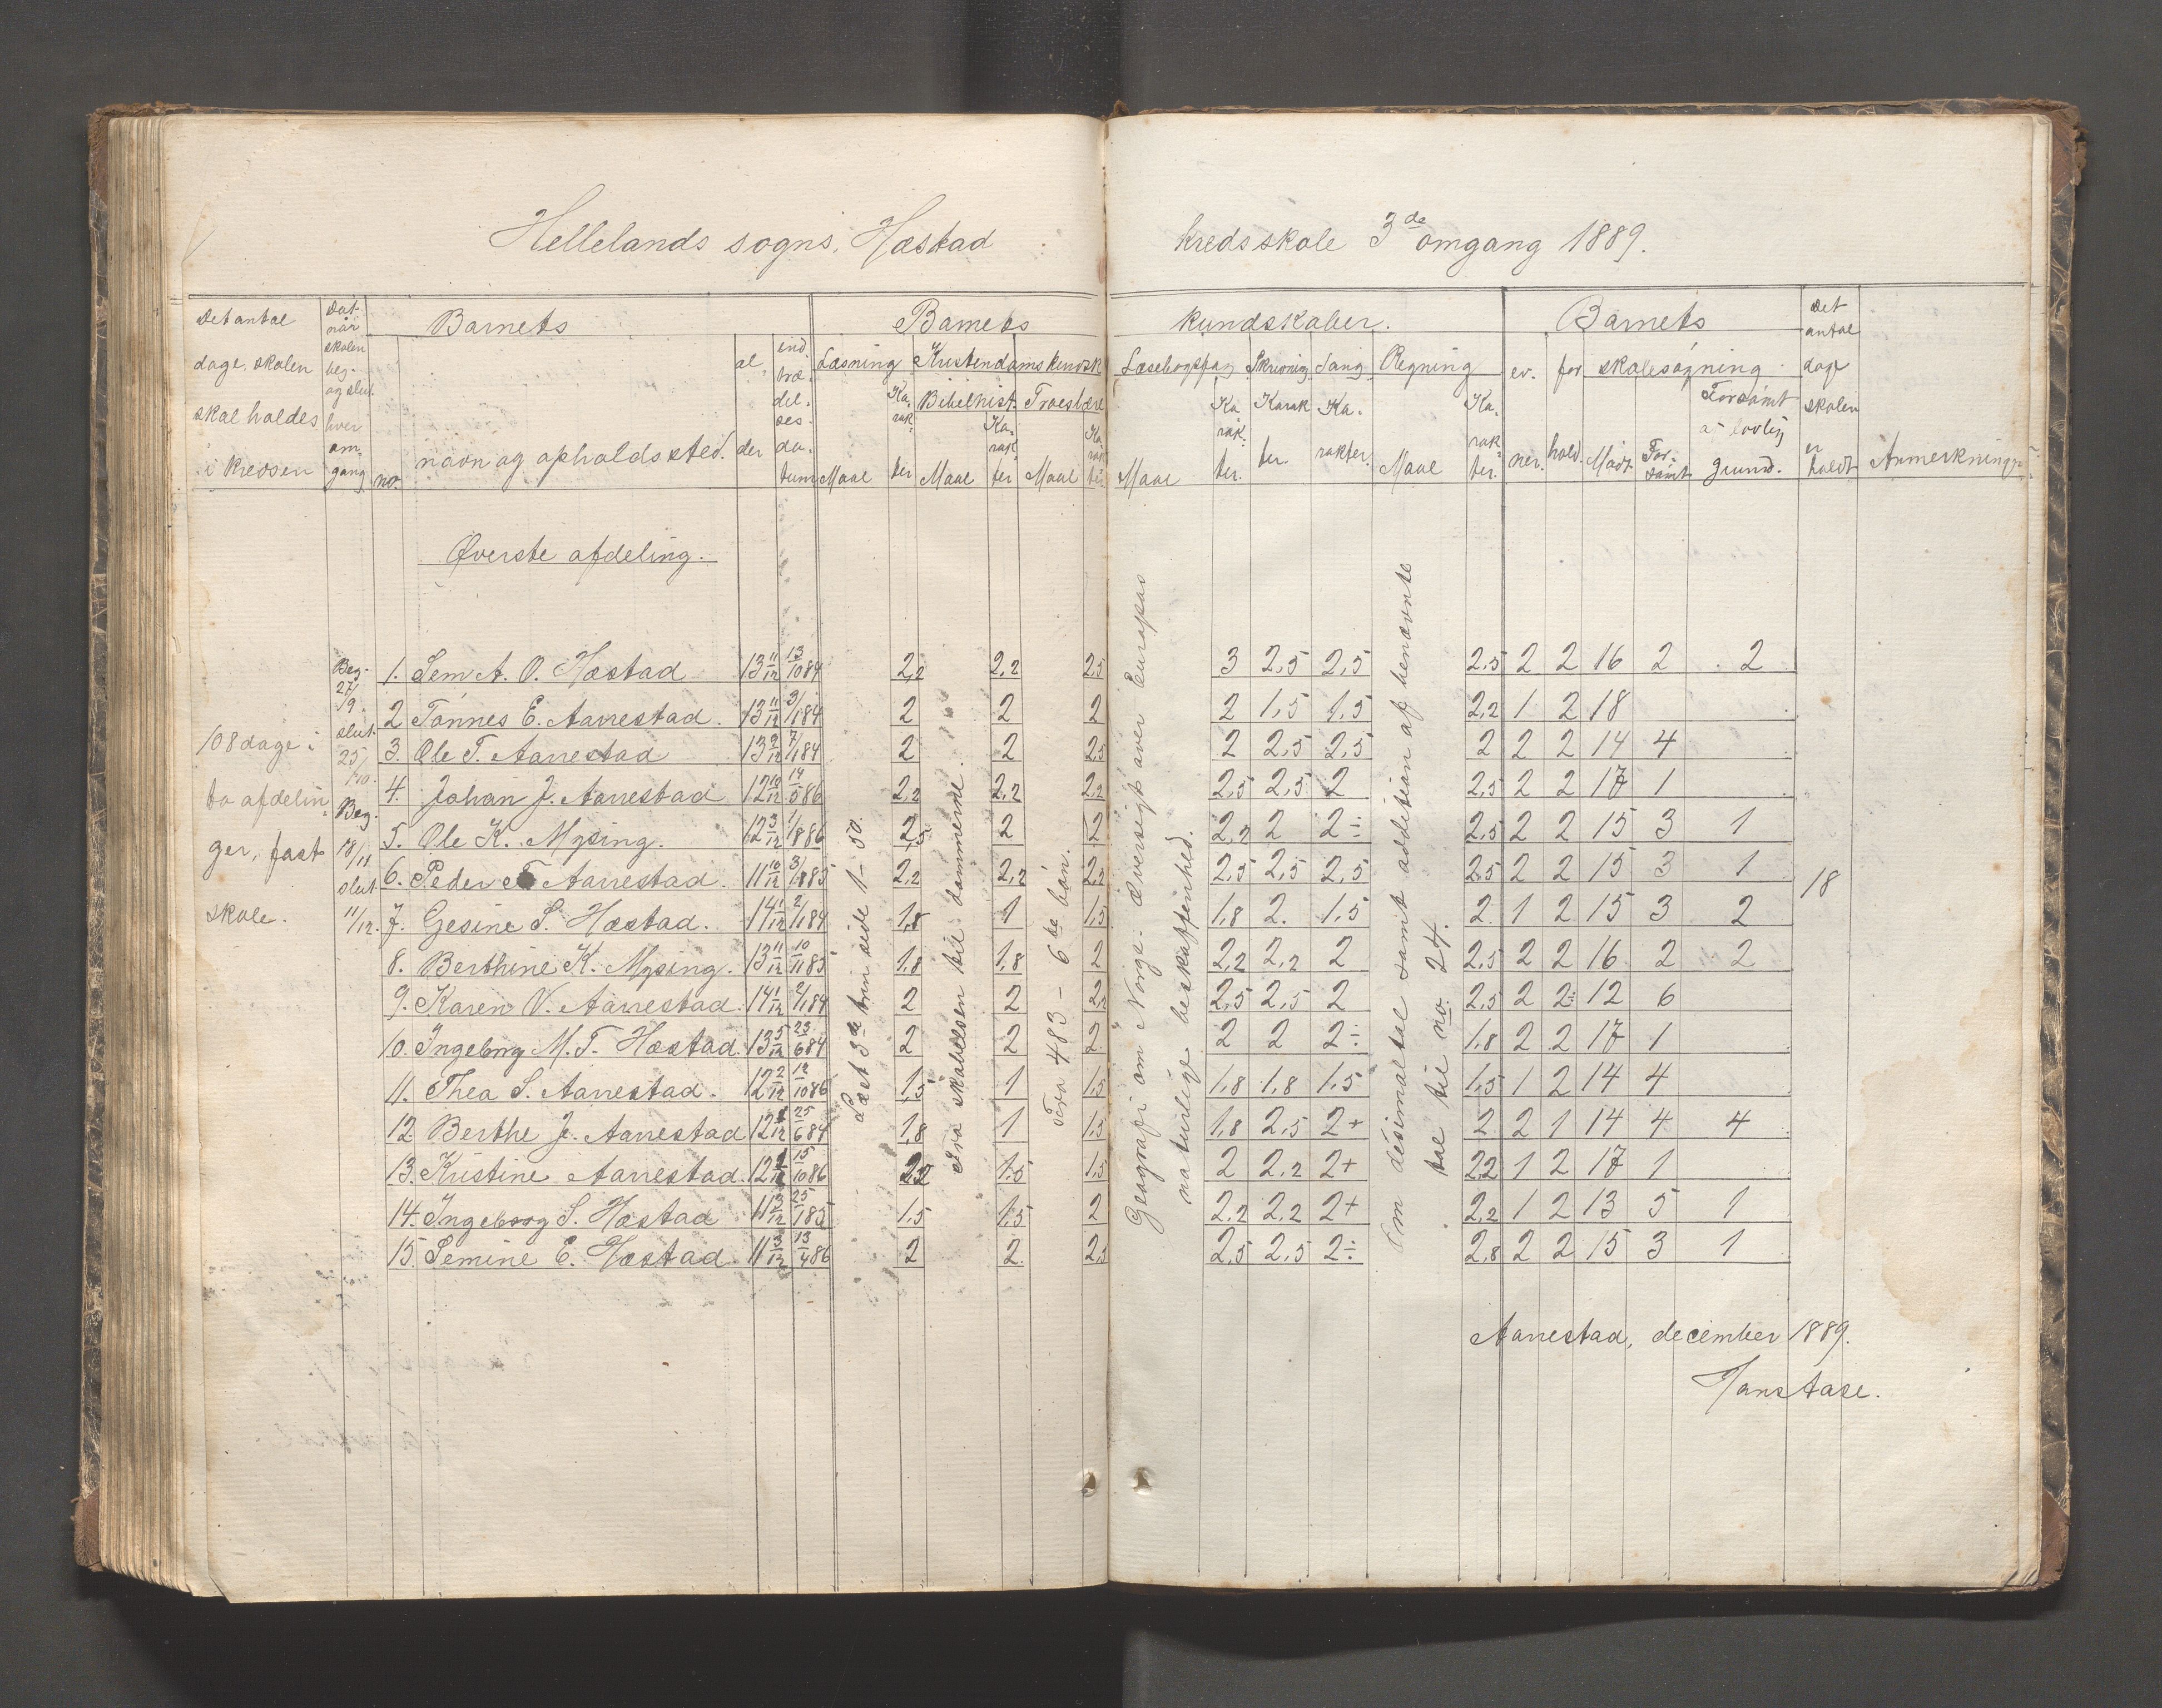 Hellelands sogns, Hæstad kredsskole 3de omgang 1889.
Det antal dage skolen skal holdes i kredsen
Dat. når skolen beg. og slut. hver omgang
Barnets
no. navn og opholdssted. al der indtrædelses datum
Barnets kundskaber.
Læsning Kristendomskundsk
Bibelhist. Troeslære
Maal Karakter Maal Karakter Maal Karakter
Læsebogsfag Skrivnig Sang Regning
Maal Karakter. Karakter. Karakter. Maal Karakter.
Barnets
ev. for skolesøgning
ner. hold. Mødt. Forsømt Forsømt af lovlig grund.
Det antal dage skolen er holdt
Anmerkninger
Øverste afdeling.
108 dage i to afdelinger, fast skole.
Beg. 27/9. slut. 25/10. Beg. 18/11 slut 11/12.
Læst 3de trin side 1-50.
Fra skabelsen til dommerne.
Fra 483 - 6te bøn.
Geografi om "Norge". Oversigt over Europas naturlige beskaffenhed.
Om desimaltal samt addition af benævnte tal til no. 24.
1. Sem A. O. Hæstad 13 11/12 13/10 84 2,2 2,2 2,5 3 2,5 2,5 2,5 2 2 16 2 2
2 Tønnes E. Aarrestad. 13 11/12 3/1 84 2 2 2 2 1,5 1,5 2,2 1 2 18
3. Ole T. Aarrestad 13 9/12 7/1 84 2 2 2,5 2 2,5 2,5 2 2 2 14 4
4. Johan J. Aarrestad 12 10/12 14/5 86 2,2 2,2 2,2 2,5 2,5 2 2,5 2 2 17 1
5. Ole K. Mysing. 12 3/12 1/8 86 2,5 2 2 2,2 2 2÷ 2,5 2 2 15 3 1
6. Peder T Aarrestad. 11 10/12 3/8 85 2,2 2,2 2,2 2,5 2,5 2,5 2,5 2 2 15 3 1
7. Gesine S. Hæstad. 14 1/12 2/1 84 1,8 1 1,5 1,8 2. 1,5 2. 1 2 15 3 2
8. Berthine K. Mysing. 13 11/12 10/11 85 1,8 1,8 2 2,2 2,2 2 2,5 2 2 16 2 2
9. Karen O. Aarrestad. 14 1/12 2/1 84 2 2 2,2 2,5 2,5 2 2,5 2 2÷ 12 6
10. Ingeborg M. T. Hæstad. 13 5/12 23/6 84 2 2 2. 2 2 2÷ 1,8 2 2 17 1
11. Thea S. Aarrestad. 12 2/12 12/10 86 1,5 1 1,5 1,8 1,8 1,5 1,5 1 2 14 4
12 Berthe J. Aarrestad 12 1/12 25/6 84 1,8 1 1,5 1,8 2,5 2+ 2 2 1 14 4 4
13. Kristine Aarrestad. 12 1/12 15/10 86 2,2 1,5 1,5 2 2,2 2+ 2,2 1 2 17 1
14. Ingeborg S. Hæstad 11 3/12 25/1 85 1,5 1,5 2 2,2 2,2 2+ 2,2 1 2 13 5 1
15. Semine E. Hæstad. 11 3/12 13/4 86 2 2. 2,2 2,5 2,5 2÷ 2,8 2 2 15 3 1
18
Aarrestad, december 1889.